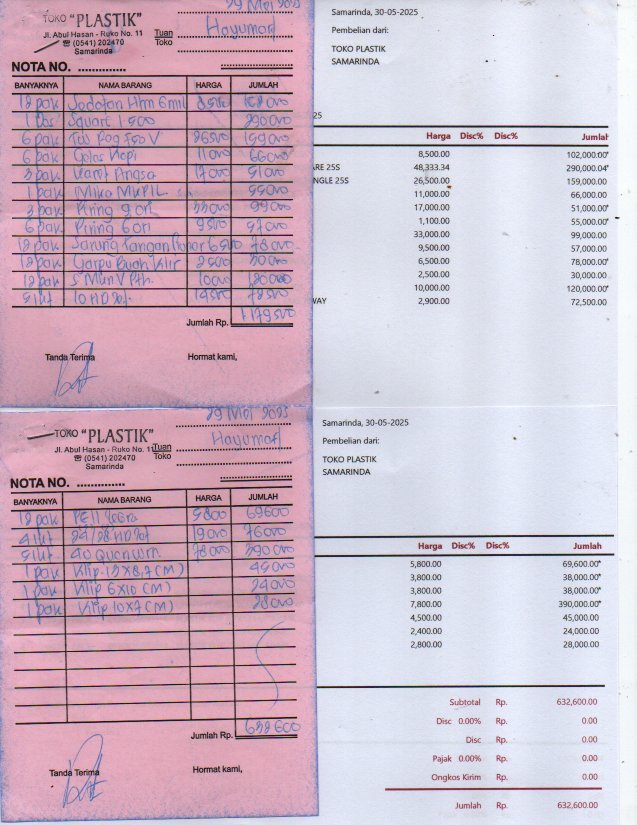 29 Mei 2025
TOKO "PLASTIK"
Jl. Abul Hasan - Ruko No. 11
☎ (0541) 202470
Samarinda
Tuan
Toko
Hayumart
NOTA NO. .............
BANYAKNYA NAMA BARANG HARGA JUMLAH
12 pak 8500
1 Dos Square 1500 290000
6 pak 26500 159000
6 pak Gelas Kopi 11000 66000
3 pak Karet Angsa 17000 51000
1 pak Mika 55000
3 pak Piring 9 ori 33000 99000
6 pak Piring 6 ori 9500 57000
12 pak Sarung Tangan 6500 78000
12 pak Garpu Buah Klir 2500 30000
12 pak 10000 120000
5 lut 10 HD 14500 72500
Jumlah Rp. 1179500
Tanda Terima Hormat kami,
Samarinda, 30-05-2025
Pembelian dari:
TOKO PLASTIK
SAMARINDA
25
Harga Disc% Disc% Jumlah
8,500.00 102,000.00*
RE 25S 48,333.34 290,000.04*
NGLE 25S 26,500.00 159,000.00
11,000.00 66,000.00
17,000.00 51,000.00*
1,100.00 55,000.00*
33,000.00 99,000.00
9,500.00 57,000.00
6,500.00 78,000.00*
2,500.00 30,000.00
10,000.00 120,000.00*
WAY 2,900.00 72,500.00
29 Mei 2025
TOKO "PLASTIK"
Jl. Abul Hasan - Ruko No. 11
☎ (0541) 202470
Samarinda
Tuan
Toko
Hayumart
NOTA NO. .............
BANYAKNYA NAMA BARANG HARGA JUMLAH
12 pak PE 11 5800 69600
4 lut 24/28 HD 19000 76000
5 lut 40 78000 390000
1 pak Klip 13x8,7 (M) 45000
1 pak Klip 6x10 (M) 24000
1 pak Klip 10x7 (M) 28000
Jumlah Rp. 632600
Tanda Terima Hormat kami,
Samarinda, 30-05-2025
Pembelian dari:
TOKO PLASTIK
SAMARINDA
Harga Disc% Disc% Jumlah
5,800.00 69,600.00*
3,800.00 38,000.00*
3,800.00 38,000.00*
7,800.00 390,000.00*
4,500.00 45,000.00
2,400.00 24,000.00
2,800.00 28,000.00
Subtotal Rp. 632,600.00
Disc 0.00% Rp. 0.00
Disc Rp. 0.00
Pajak 0.00% Rp. 0.00
Ongkos Kirim Rp. 0.00
Jumlah Rp. 632,600.00